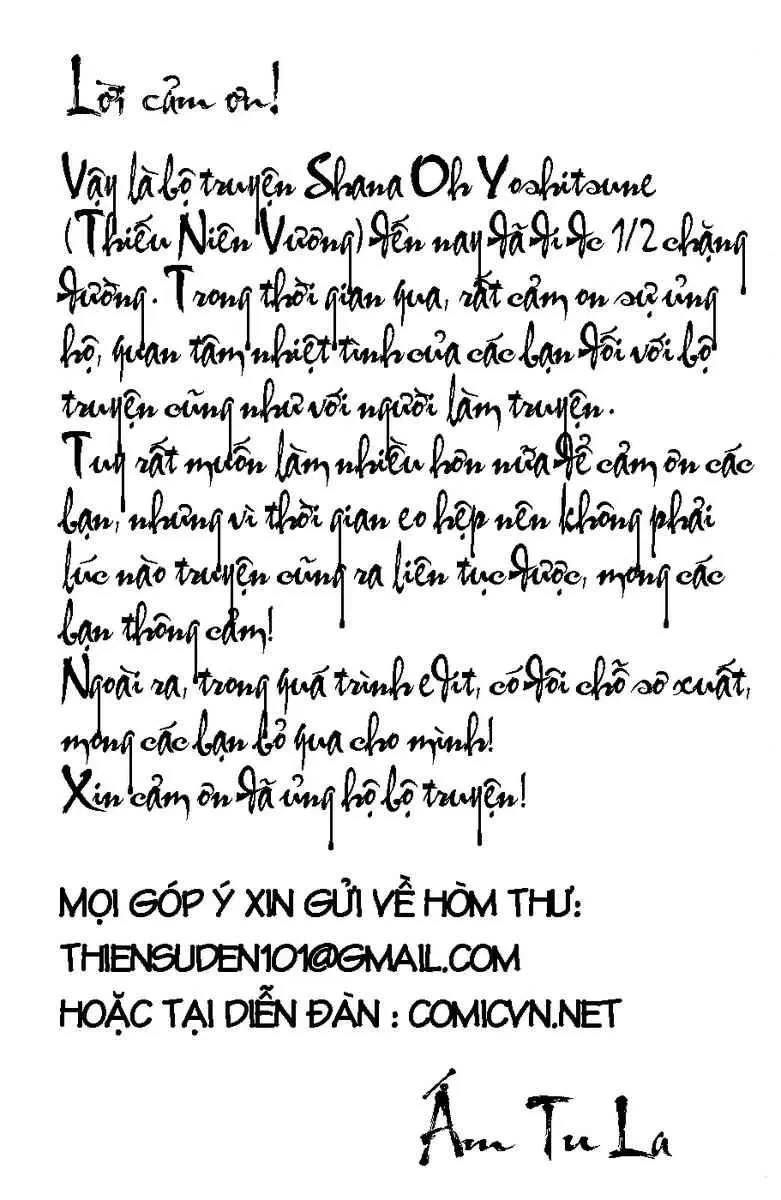 Lời cảm ơn!
Vậy là bộ truyện Shana Oh Yoshitsune
(Thiếu Niên Vương) đến nay đã đi đc 1/2 chặng
đường. Trong thời gian qua, rất cảm ơn sự ủng
hộ, quan tâm nhiệt tình của các bạn đối với bộ
truyện cũng như với người làm truyện.
Tuy rất muốn làm nhiều hơn nữa để cảm ơn các
bạn, nhưng vì thời gian eo hẹp nên không phải
lúc nào truyện cũng ra liên tục được, mong các
bạn thông cảm!
Ngoài ra, trong quá trình edit, có đôi chỗ sơ xuất,
mong các bạn bỏ qua cho mình!
Xin cảm ơn đã ủng hộ bộ truyện!
MỌI GÓP Ý XIN GỬI VỀ HÒM THƯ:
THIENSUDEN101@GMAIL.COM
HOẶC TẠI DIỄN ĐÀN : COMICVN.NET
Ám Tu La